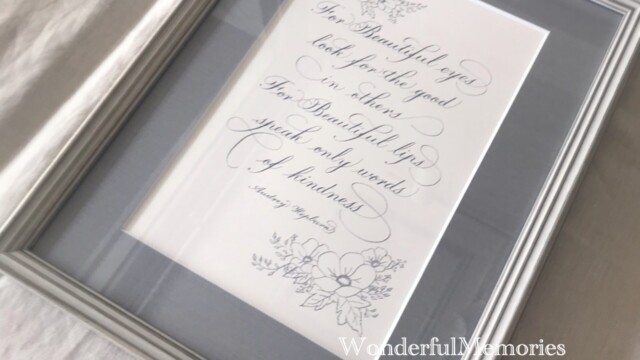 For Beautiful eyes
look for the good
in others
For Beautiful lips
speak only words
of kindness
Audrey Hepburn
WonderfulMemories